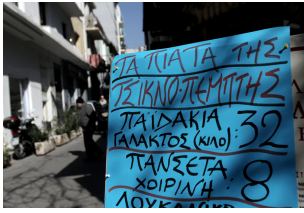 ΤΑ ΠΙΑΤΑ ΤΗΣ
ΤΣΙΚΝΟΠΕΜΠΤΗΣ
ΠΑΪΔΑΚΙΑ
ΓΑΛΑΚΤΟΣ (ΚΙΛΟ): 32
ΠΑΝΣΕΤΑ
ΧΟΙΡΙΝΗ : 8